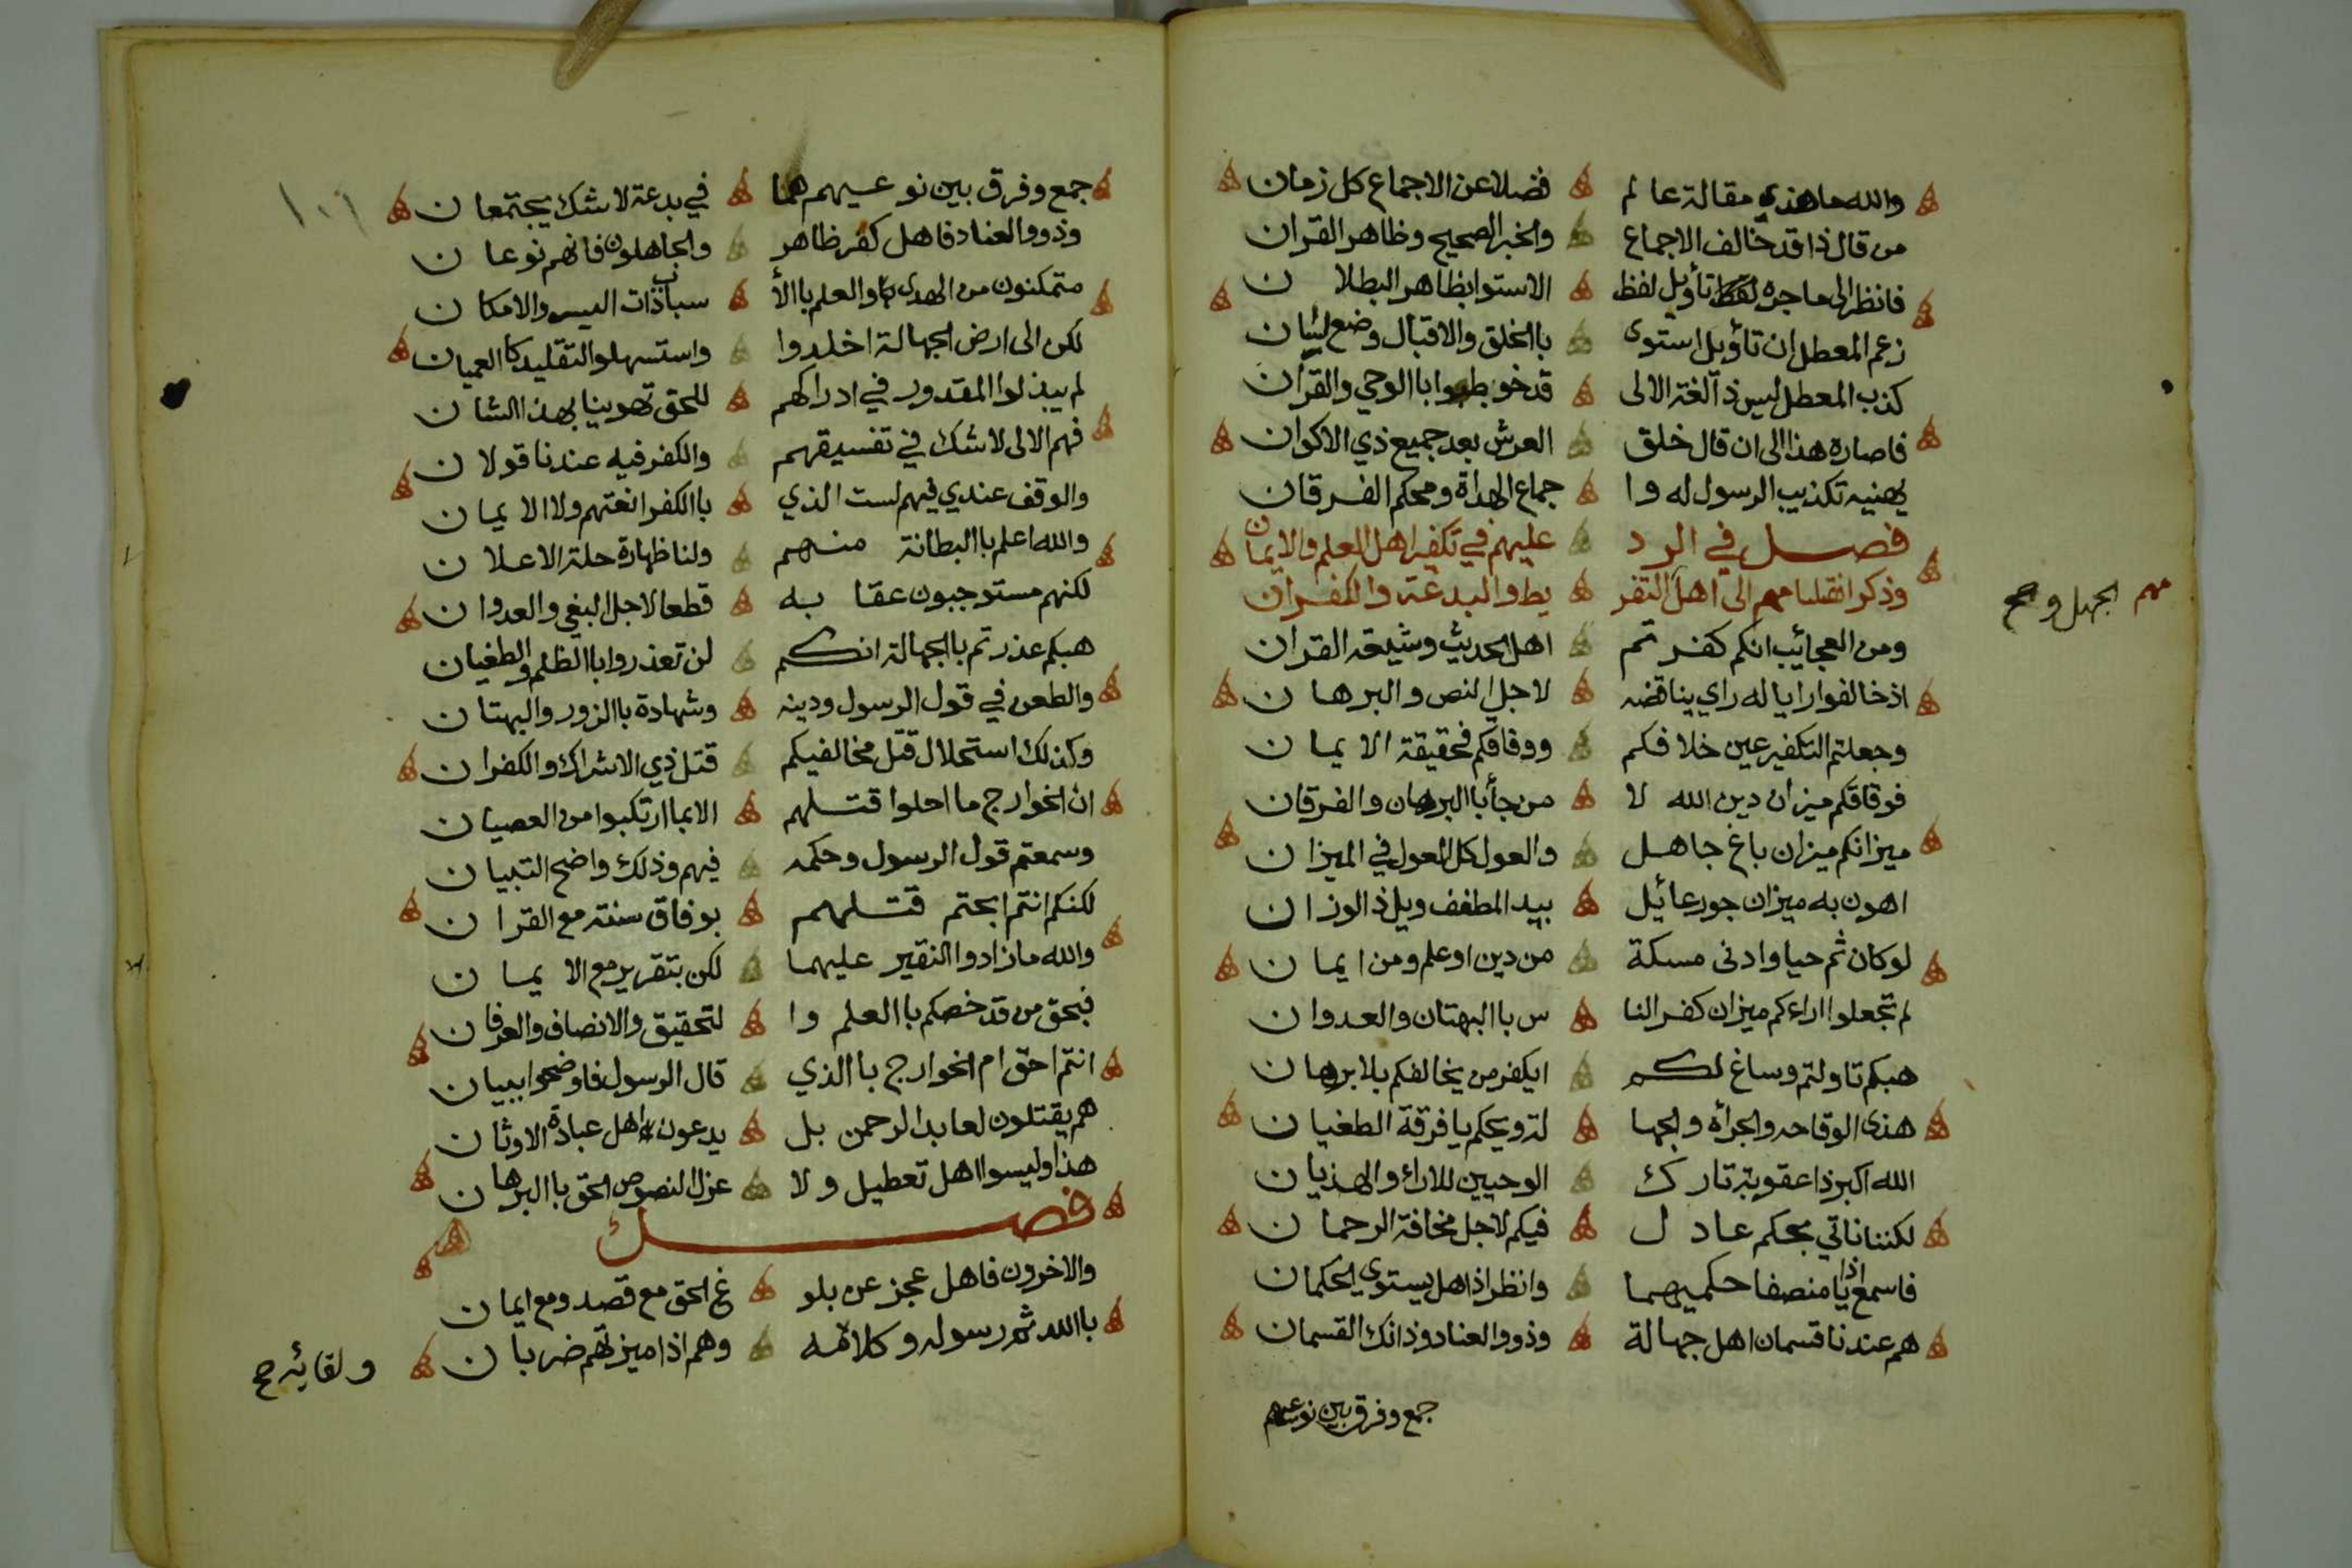 والله ما هذي مقالة عالم فضلا عن الاجماع كل زمان
من قال ذا قد خالف الاجماع والخبر الصحيح وظاهر القران
فانظر الى ما جره تأويل لفظ الاستوا بظاهر البطلان
زعم المعطل ان تأويل استوى باالخلق والاقبال وضع لسان
كذب المعطل ليس ذا لغة الالى قد خوطبوا باالوحي والقرآن
فاصاره هذا الى ان قال خلق العرش بعد جميع ذي الاكوان
يهنيه تكذيب الرسول له وا جماع الهداة ومحكم الفرقان
فصل في الرد عليهم في تكفير اهل العلم والايمان
وذكر انقسامهم الى اهل التفريط والبدعة والكفران
مهم الجهل و صح
ومن العجائيب انكم كفرتم اهل الحديث وشيعة القران
اذ خالفوا رايا له راي يناقضه لاجل النص والبرهان
وجعلتم التكفير عين خلافكم ووفاقكم فحقيقة الايمان
فوفاقكم ميزان دين الله لا من جأ باالبرهان والفرقان
ميزانكم ميزان باغ جاهل والعول كل العول في الميزان
اهون به ميزان جور عائيل بيد المطفف ويل ذ الوزان
لو كان ثم حيا وادنى مسكة من دين او علم ومن ايمان
لم تجعلوا اراءكم ميزان كفر النا س باالبهتان والعدوان
هبكم تاولتم وساغ لكم ايكفر من يخالفكم بلا برهان
هذى الوقاحه والجرأه والجها لة ويحكم يا فرقة الطغيان
الله اكبر ذا عقوبة تارك الوحيين للاراء والهذيان
لكننا ناتي بحكم عادل فيكم لاجل مخافة الرحمان
فاسمع اذا يا منصفا حكميهما وانظر اذا هل يستوى الحكمان
هم عندنا قسمان اهل جهالة وذوو العناد وذانك القسمان
جمع وفرق بين نوعيهم
١٠٦
جمع وفرق بين نوعيهم هما في بدعة لا شك يجتمعان
وذوو العناد فاهل كفر ظاهر والجاهلون فانهم نوعان
متمكنون من الهدى والعلم باالأ سباب ذات اليسر والامكان
لكن الى ارض الجهالة اخلدوا واستسهلوا التقليد كا العميان
لم يبذلوا المقدور في ادراكهم للحق تهوينا بهذا الشان
فهم الالى لا شك في تفسيقهم والكفر فيه عندنا قولان
والوقف عندي فيهم لست الذي باالكفر انعتهم ولا الايمان
والله اعلم باالبطانة منهم ولنا ظهارة حلة الاعلان
لكنهم مستوجبون عقابه قطعا لاجل البغي والعدوان
هبكم عذرتم باالجهالة انكم لن تعذروا باالظلم والطغيان
والطعن في قول الرسول ودينه وشهادة باالزور والبهتان
وكذلك استحلال قتل مخالفيكم قتل ذي الاشراك والكفران
ان الخوارج ما احلوا قتلهم الا بما ارتكبوا من العصيان
وسمعتم قول الرسول وحكمه فيهم وذلك واضح التبيان
لكنكم انتم ابحتم قتلهم بوفاق سنته مع القران
والله ما زادوا النقير عليهما لكن بتقرير مع الايمان
فبحق من قد خصكم باالعلم وا لتحقيق والانصاف والعرفان
انتم احق ام الخوارج باالذي قال الرسول فاوضحوا ببيان
هم يقتلون لعابد الرحمن بل يدعون اهل عبادة الاوثان
هذا وليسوا اهل تعطيل ولا عزل النصوص الحق باالبرهان
فصل
والاخرون فاهل عجز عن بلو غ الحق مع قصد ومع ايمان
باالله ثم رسوله وكلامه وهم اذا ميزتهم ضربان
ولقايه صح